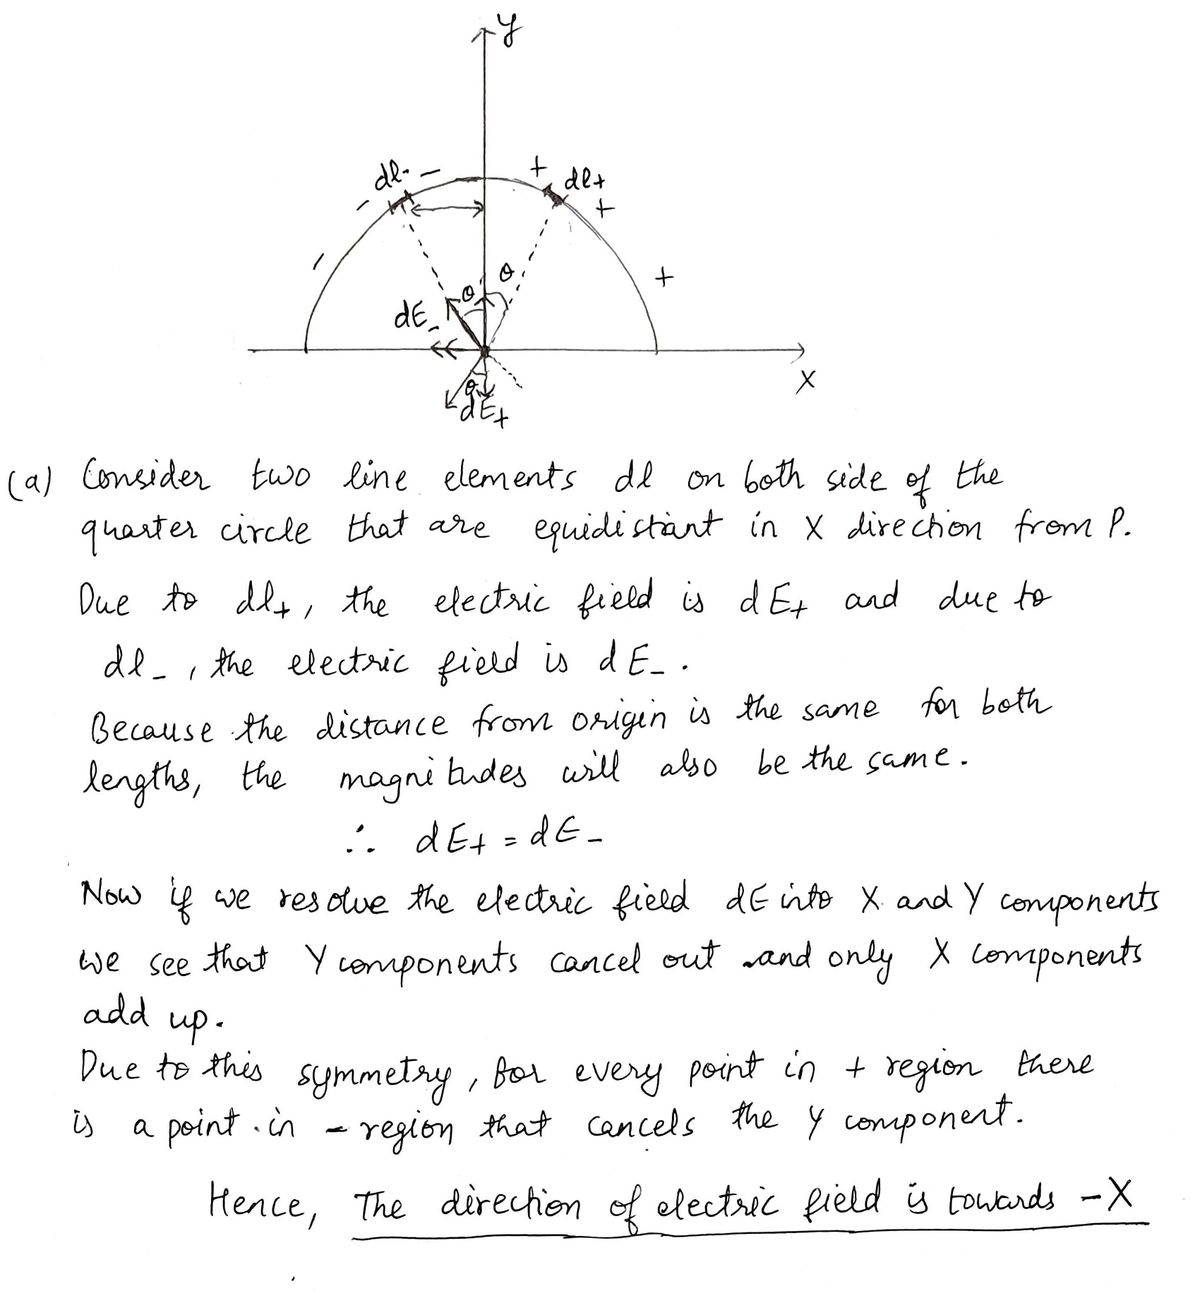 Y
dl- - + dl+
- +
- +
θ θ
dE_
X
θ
dE+
(a) Consider two line elements dl on both side of the
quarter circle that are equidistant in X direction from P.
Due to dl+, the electric field is dE+ and due to
dl_, the electric field is dE_.
Because the distance from origin is the same for both
lengths, the magnitudes will also be the same.
∴ dE+ = dE_
Now if we resolve the electric field dE into X and Y components
we see that Y components cancel out and only X components
add up.
Due to this symmetry, for every point in + region there
is a point in - region that cancels the y component.
Hence, The direction of electric field is towards -X